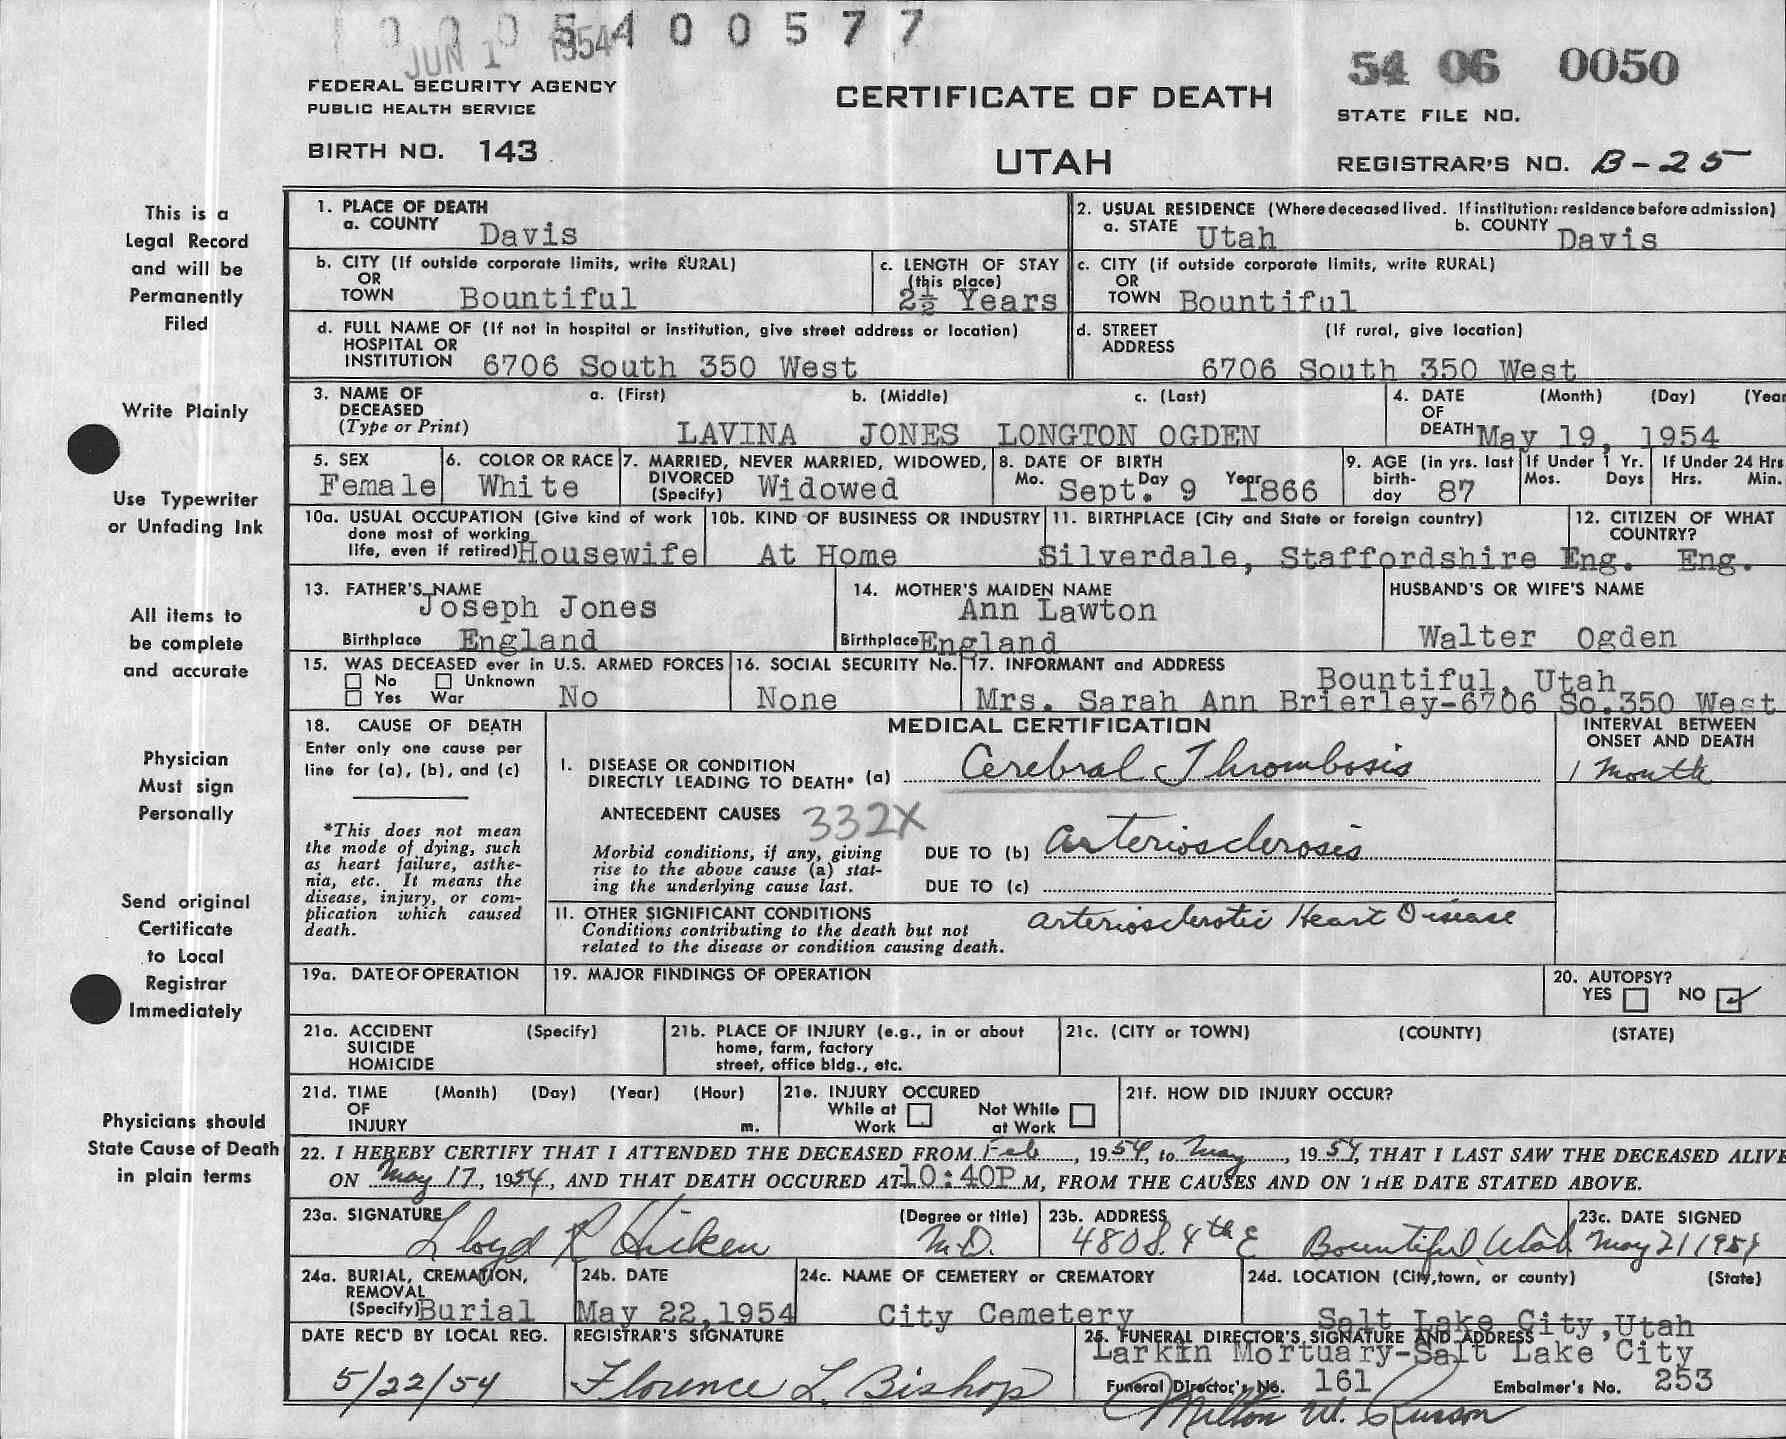 5400577
JUN 1 1954
54 06 0050
FEDERAL SECURITY AGENCY
PUBLIC HEALTH SERVICE
CERTIFICATE OF DEATH
STATE FILE NO.
BIRTH NO. 143
UTAH
REGISTRAR'S NO. B-25
This is a
Legal Record
and will be
Permanently
Filed
Write Plainly
Use Typewriter
or Unfading Ink
All items to
be complete
and accurate
Physician
Must sign
Personally
Send original
Certificate
to Local
Registrar
Immediately
Physicians should
State Cause of Death
in plain terms
1. PLACE OF DEATH
a. COUNTY Davis
2. USUAL RESIDENCE (Where deceased lived. If institution: residence before admission)
a. STATE Utah b. COUNTY Davis
b. CITY (If outside corporate limits, write RURAL)
OR
TOWN Bountiful
c. LENGTH OF STAY
(this place)
2½ Years
c. CITY (if outside corporate limits, write RURAL)
OR
TOWN Bountiful
d. FULL NAME OF (If not in hospital or institution, give street address or location)
HOSPITAL OR
INSTITUTION 6706 South 350 West
d. STREET (If rural, give location)
ADDRESS
6706 South 350 West
3. NAME OF a. (First) b. (Middle) c. (Last)
DECEASED
(Type or Print)
LAVINA JONES LONGTON OGDEN
4. DATE (Month) (Day) (Year
OF
DEATH May 19, 1954
5. SEX
Female
6. COLOR OR RACE
White
7. MARRIED, NEVER MARRIED, WIDOWED,
DIVORCED
(Specify) Widowed
8. DATE OF BIRTH
Mo. Day Year
Sept. 9 1866
9. AGE (in yrs. last
birth-
day 87
If Under 1 Yr.
Mos. Days
If Under 24 Hrs
Hrs. Min.
10a. USUAL OCCUPATION (Give kind of work
done most of working
life, even if retired) Housewife
10b. KIND OF BUSINESS OR INDUSTRY
At Home
11. BIRTHPLACE (City and State or foreign country)
Silverdale, Staffordshire Eng.
12. CITIZEN OF WHAT
COUNTRY?
Eng.
13. FATHER'S NAME
Joseph Jones
Birthplace England
14. MOTHER'S MAIDEN NAME
Ann Lawton
Birthplace England
HUSBAND'S OR WIFE'S NAME
Walter Ogden
15. WAS DECEASED ever in U.S. ARMED FORCES
No Unknown
Yes War No
16. SOCIAL SECURITY No.
None
17. INFORMANT and ADDRESS
Bountiful, Utah
Mrs. Sarah Ann Brierley-6706 So. 350 West
18. CAUSE OF DEATH
Enter only one cause per
line for (a), (b), and (c)
*This does not mean
the mode of dying, such
as heart failure, asthe-
nia, etc. It means the
disease, injury, or com-
plication which caused
death.
MEDICAL CERTIFICATION
INTERVAL BETWEEN
ONSET AND DEATH
I. DISEASE OR CONDITION
DIRECTLY LEADING TO DEATH* (a) Cerebral Thrombosis
1 Month
ANTECEDENT CAUSES 332X
Morbid conditions, if any, giving
rise to the above cause (a) stat-
ing the underlying cause last.
DUE TO (b) Arteriosclerosis
DUE TO (c)
II. OTHER SIGNIFICANT CONDITIONS
Conditions contributing to the death but not
related to the disease or condition causing death.
Arteriosclerotic Heart Disease
19a. DATE OF OPERATION
19. MAJOR FINDINGS OF OPERATION
20. AUTOPSY?
YES NO
21a. ACCIDENT (Specify)
SUICIDE
HOMICIDE
21b. PLACE OF INJURY (e.g., in or about
home, farm, factory
street, office bldg., etc.
21c. (CITY or TOWN) (COUNTY) (STATE)
21d. TIME (Month) (Day) (Year) (Hour)
OF
INJURY m.
21e. INJURY OCCURED
While at Not While
Work at Work
21f. HOW DID INJURY OCCUR?
22. I HEREBY CERTIFY THAT I ATTENDED THE DECEASED FROM Feb, 1954, to May, 1954, THAT I LAST SAW THE DECEASED ALIVE
ON May 17, 1954, AND THAT DEATH OCCURED AT 10:40P M, FROM THE CAUSES AND ON THE DATE STATED ABOVE.
23a. SIGNATURE (Degree or title)
Lloyd R Hicken M.D.
23b. ADDRESS
480 S. 4th E Bountiful Utah
23c. DATE SIGNED
May 21 1954
24a. BURIAL, CREMATION,
REMOVAL
(Specify) Burial
24b. DATE
May 22, 1954
24c. NAME OF CEMETERY or CREMATORY
City Cemetery
24d. LOCATION (City, town, or county) (State)
Salt Lake City, Utah
DATE REC'D BY LOCAL REG.
5/22/54
REGISTRAR'S SIGNATURE
Florence L. Bishop
25. FUNERAL DIRECTOR'S SIGNATURE AND ADDRESS
Larkin Mortuary-Salt Lake City
Funeral Director's No. 161 Embalmer's No. 253
Milton W. Russon